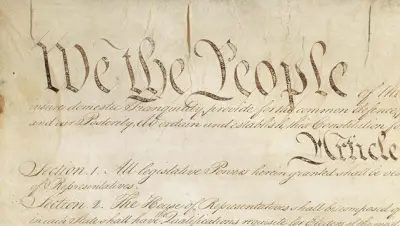 We the People of the
insure domestic Tranquility, provide for the common defence,
and our Posterity, do ordain and establish this Constitution for
Article
Section. 1. All legislative Powers herein granted shall be
of Representatives.
Section. 2. The House of Representatives shall be composed of
in each State shall have Qualifications requisite for Electors of the